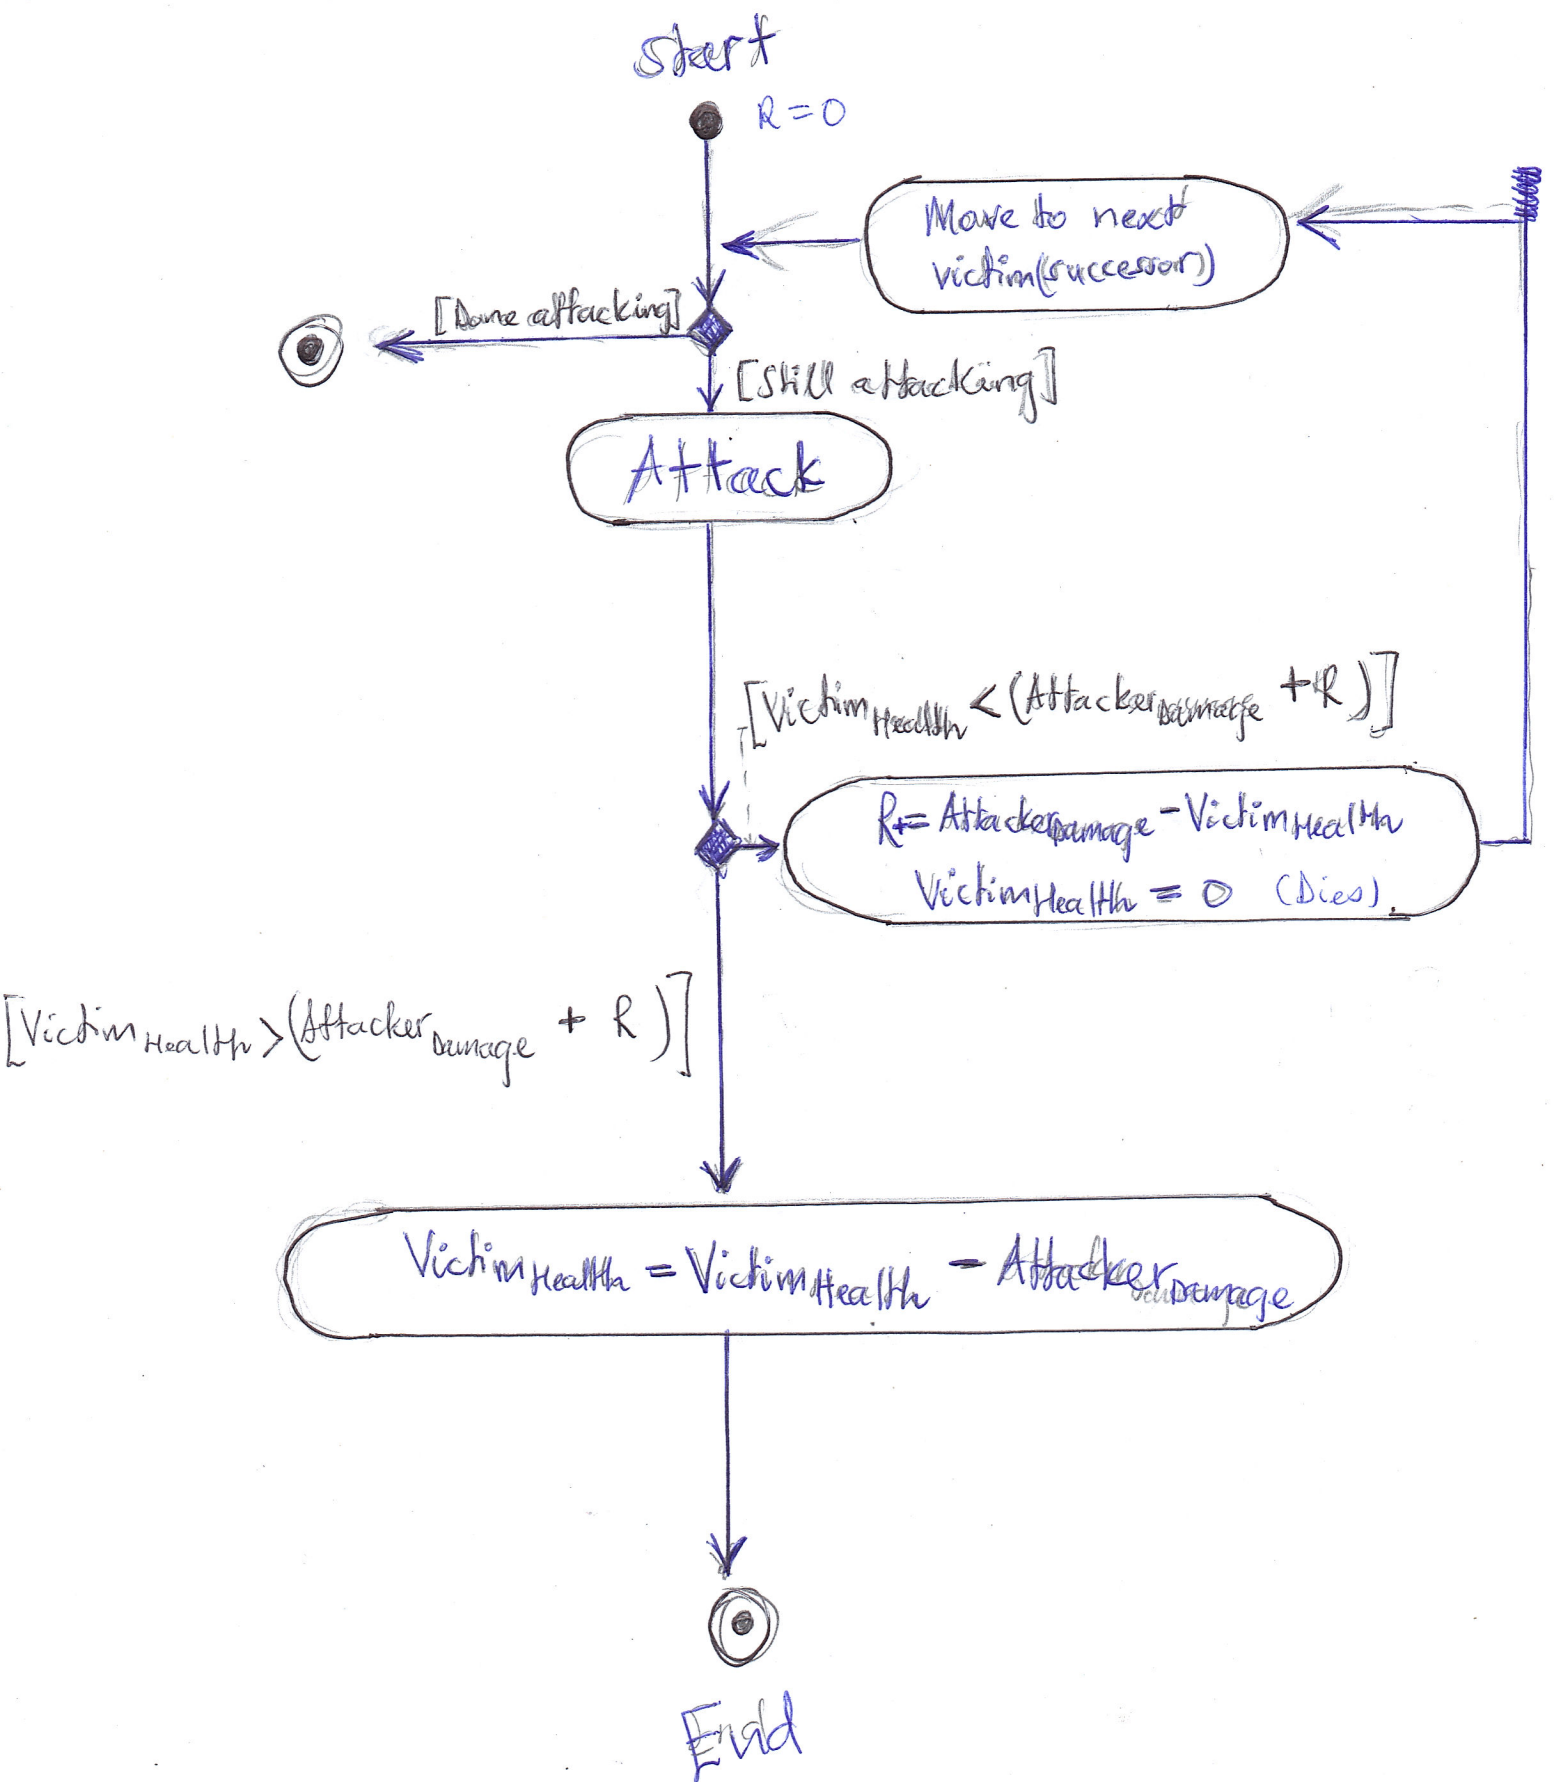 Start
R = 0
Move to next
victim(successor)
[Done attacking]
[Still attacking]
Attack
[Victim Health < (Attacker Damage + R )]
R += Attacker Damage - Victim Health
Victim Health = 0 (Dies).
[Victim Health > (Attacker Damage + R )]
Victim Health = Victim Health - Attacker Damage
End